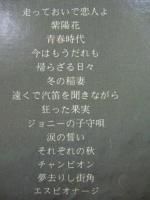 走っておいで恋人よ
紫陽花
青春時代
今はもうだれも
帰らざる日々
冬の稲妻
遠くで汽笛を聞きながら
狂った果実
ジョニーの子守唄
涙の誓い
それぞれの秋
チャンピオン
夢去りし街角
エスピオナージ